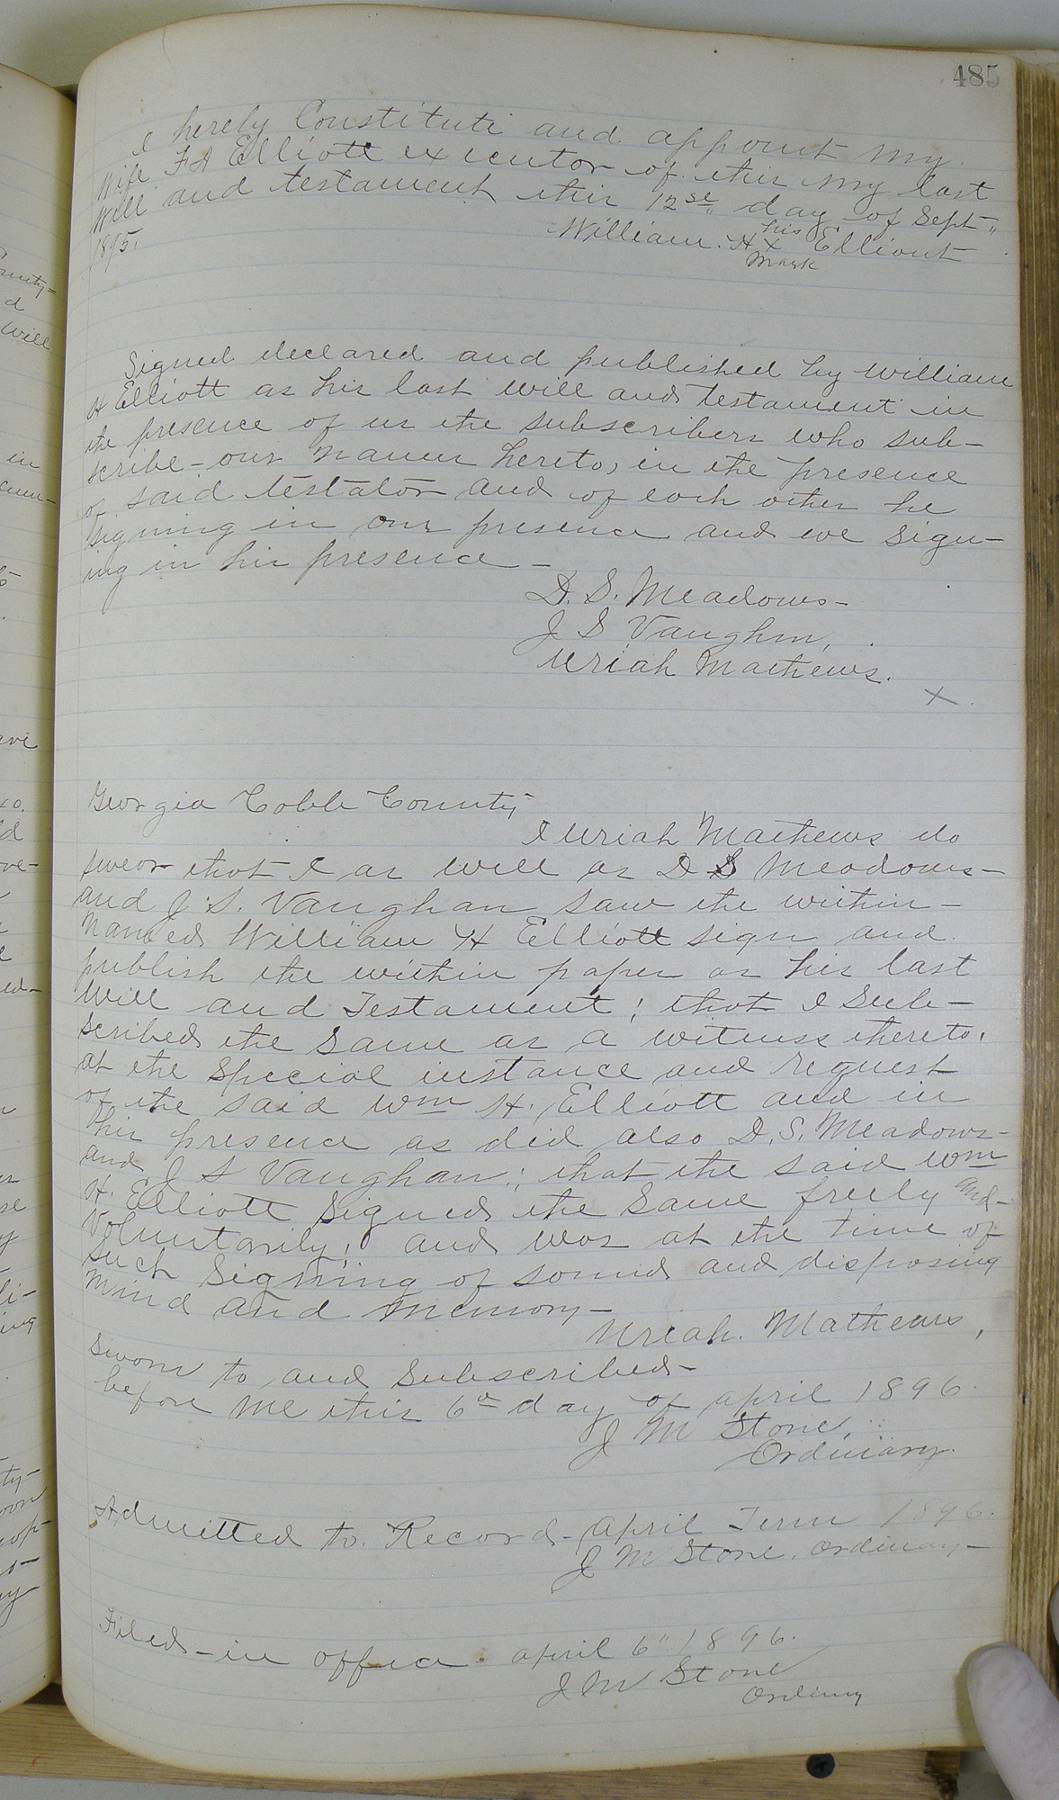 485
I hereby Constitute and appoint my
Wife F A Elliott executor of this my last
Will and testament this 12st day of Sept"
1895.
his
William. H X Elliout
Mark
Signed declared and published by William
H Elliott as his last will and testament in
the presence of us the subscribers who sub-
scribe-our names hereto, in the presence
of said testator and of each other he
signing in our presence and we sign-
ing in his presence-
D. S. Meadows-
J S Vaughn,
Uriah Mathews.
X
Georgia Cobb County
I Uriah Mathews do
swear that I as well as D S Meadows-
and J. S. Vaughan saw the within-
named William H Elliott sign and
publish the within paper as his last
Will and Testament; that I Sub-
scribed the same as a witness thereto,
at the special instance and request
of the said Wm H. Elliott and in
his presence as did also D. S. Meadows-
and J S Vaughan; that the said Wm
H. Elliott signed the same freely and-
Voluntarily, and was at the time of
such signing of sound and disposing
mind and memory-
Uriah. Mathews,
Sworn to and Subscribed-
before me this 6th day of april 1896.
J M Stone,
Ordinary.
Admitted to Record-April Term 1896.
J M Stone. Ordinary-
Filed-in office. april 6" 1896.
J M Stone
Ordinary